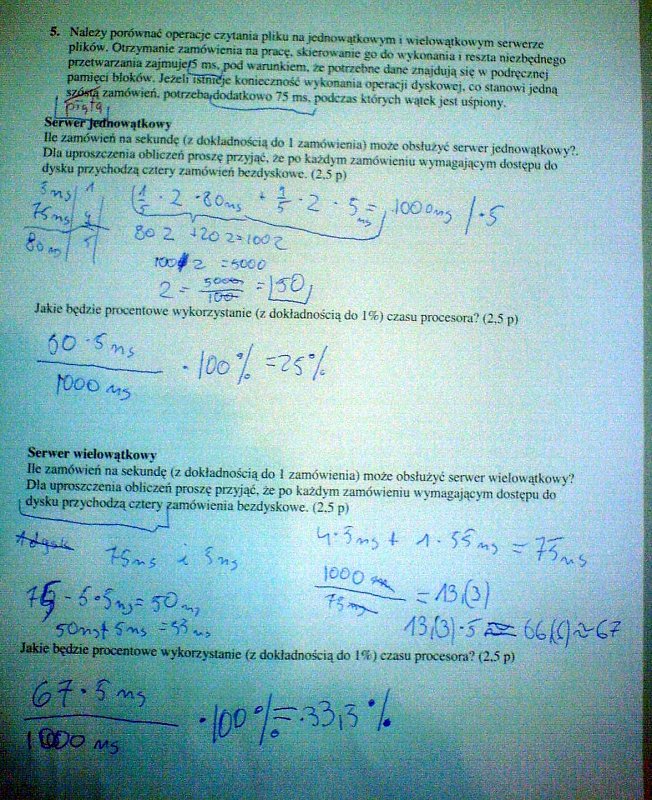 5. Należy porównać operacje czytania pliku na jednowątkowym i wielowątkowym serwerze
plików. Otrzymanie zamówienia na pracę, skierowanie go do wykonania i reszta niezbędnego
przetwarzania zajmuje 5 ms, pod warunkiem, że potrzebne dane znajdują się w podręcznej
pamięci bloków. Jeżeli istnieje konieczność wykonania operacji dyskowej, co stanowi jedną
szóstą zamówień, potrzeba dodatkowo 75 ms, podczas których wątek jest uśpiony.
piąta
Serwer jednowątkowy
Ile zamówień na sekundę (z dokładnością do 1 zamówienia) może obsłużyć serwer jednowątkowy?.
Dla uproszczenia obliczeń proszę przyjąć, że po każdym zamówieniu wymagającym dostępu do
dysku przychodzą cztery zamówień bezdyskowe. (2,5 p)
5ms 1
75ms 4
80ms 5
80 z + 20 z = 100 z
100 z = 5000
z = 5000/100 = 50
Jakie będzie procentowe wykorzystanie (z dokładnością do 1%) czasu procesora? (2,5 p)
50 · 5 ms / 1000 ms · 100% = 25%
Serwer wielowątkowy
Ile zamówień na sekundę (z dokładnością do 1 zamówienia) może obsłużyć serwer wielowątkowy?
Dla uproszczenia obliczeń proszę przyjąć, że po każdym zamówieniu wymagającym dostępu do
dysku przychodzą cztery zamówienia bezdyskowe. (2,5 p)
75ms i 5ms
4·5ms + 1·55ms = 75ms
1000 ms / 75ms = 13,(3)
75 - 5·5ms = 50ms
50ms + 5ms = 55ms
13,(3)·5 = 66,(6) ≈ 67
Jakie będzie procentowe wykorzystanie (z dokładnością do 1%) czasu procesora? (2,5 p)
67 · 5 ms / 1000 ms · 100% = 33,3%